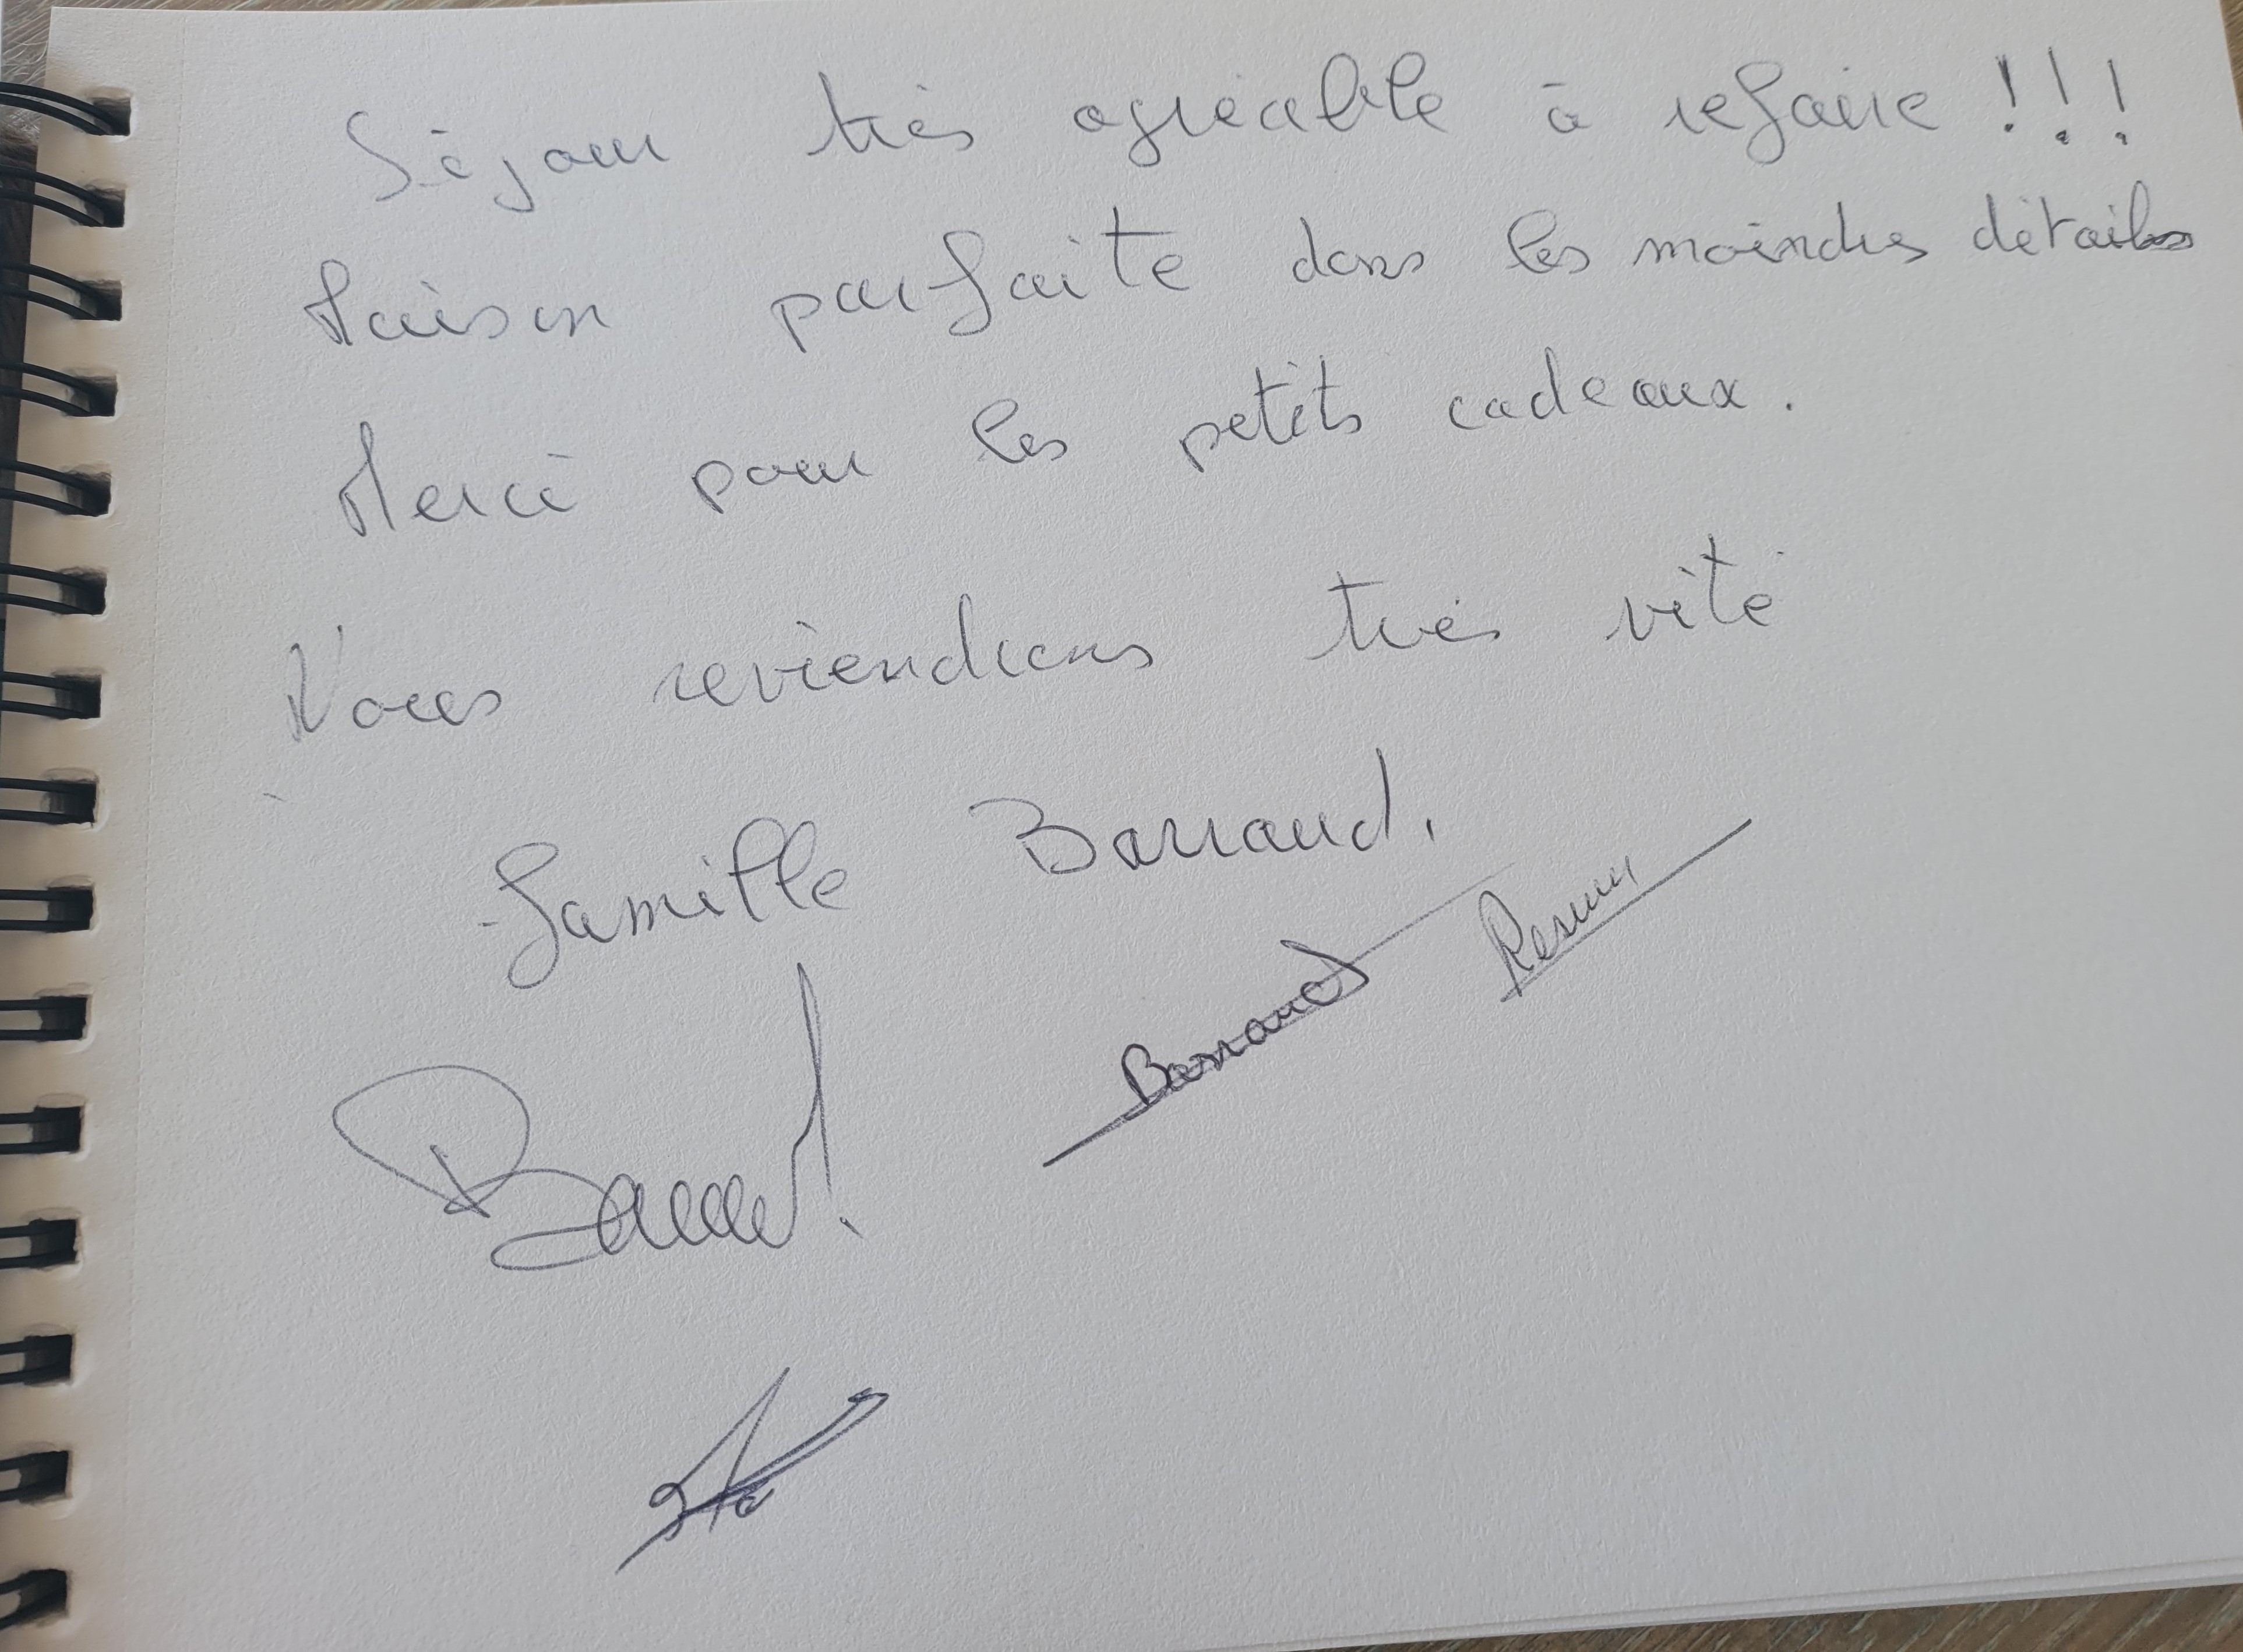 Séjour très agréable à refaire !!!
Maison parfaite dans les moindres détails
Merci pour les petits cadeaux.
Nous reviendrons très vite
famille Barraud.
Barraud